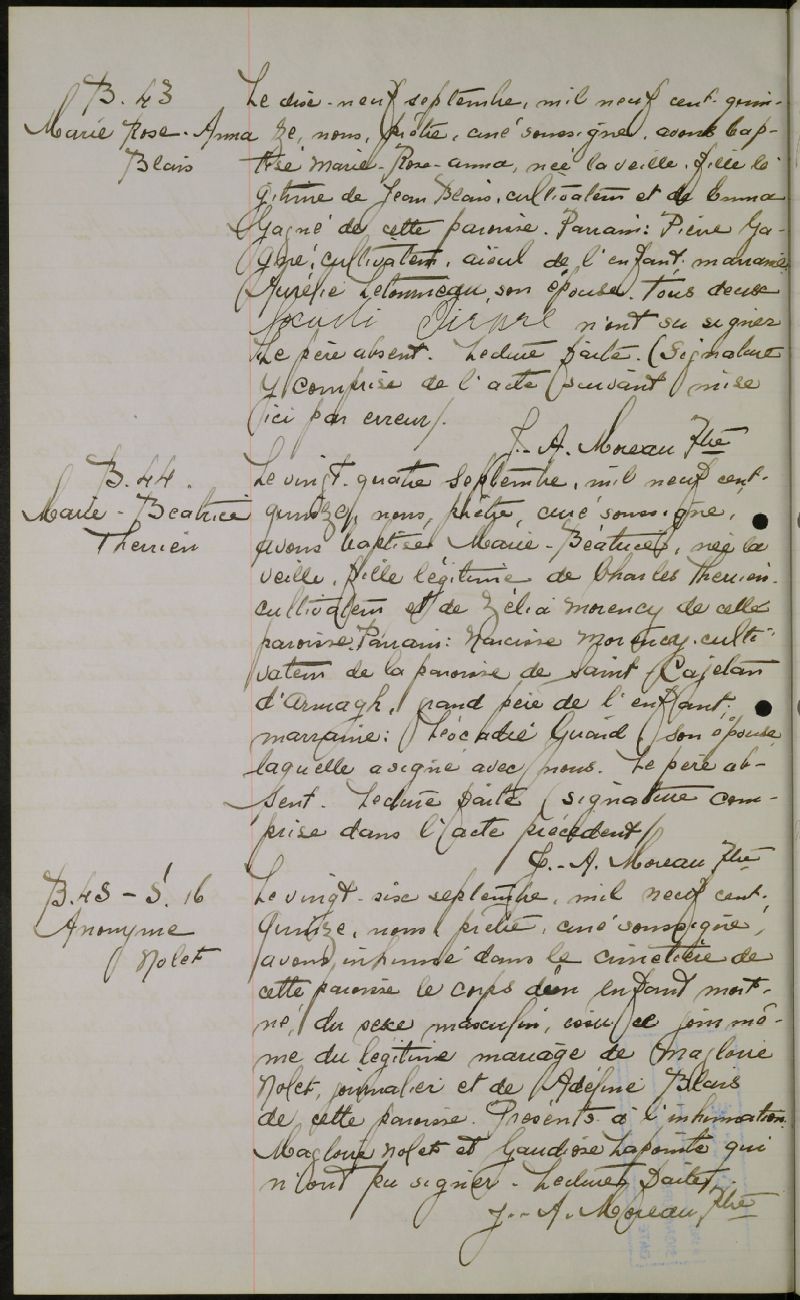 B. 43
Marie Rose-Anna
Blais
Le dix-neuf septembre, mil neuf cent quin-
ze, nous, prêtre, curé soussigné, avons bap-
tisé Marie-Rose-anna, née la veille, fille lé
gitime de Jean Blais, cultivateur et de Emma
Gagné de cette paroisse. Parrain: Pierre Ga-
gné, cultivateur, aïeul de l'enfant: marraine
Aurélie Létourneau, son épouse. Tous deux
n'ont su signer
Le père absent. Lecture faite. (Signature
y comprise de l'acte suivant mise
ici par erreur).
J.-A. Moreau Ptre
B. 44.
Marie-Beatrice
Therrien
Le vingt-quatre septembre, mil neuf cent-
quinze, nous, prêtre, curé soussigné,
avons baptisé Marie-Béatrice, née la
veille, fille légitime de Charles Therrien
cultivateur et de Zélia Morency de cette
paroisse. Parrain: Narcisse Morency, culti-
vateur de la paroisse de saint Cajetan
d'Armagh, grand père de l'enfant;
marraine: Léocadie Guard, son épouse
laquelle a signé avec nous. Le père ab-
sent. Lecture faite (signature com-
prise dans l'acte précédent)
J.-A. Moreau Ptre
B. 45 - S. 16
Anonyme
Nolet
Le vingt-six septembre, mil neuf cent-
quinze, nous, prêtre, curé soussigné,
avons inhumé dans le cimetière de
cette paroisse le corps d'un enfant mort-
né, du sexe masculin, issu ce jour mê-
me du légitime mariage de Magloire
Nolet, journalier et de Adéline Blais
de cette paroisse. Présents à l'inhumation
Magloire Nolet et Gaudiose Lapointe qui
n'ont pu signer. Lecture faite.
J.-A. Moreau Ptre